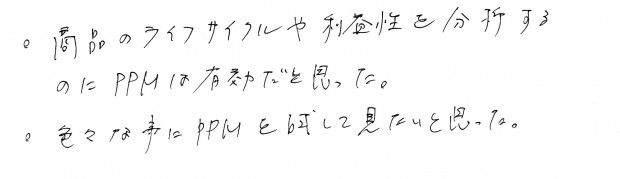 。商品のライフサイクルや利益性を分析する
のにPPMは有効だと思った。
。色々な事にPPMを試して見たいと思った。